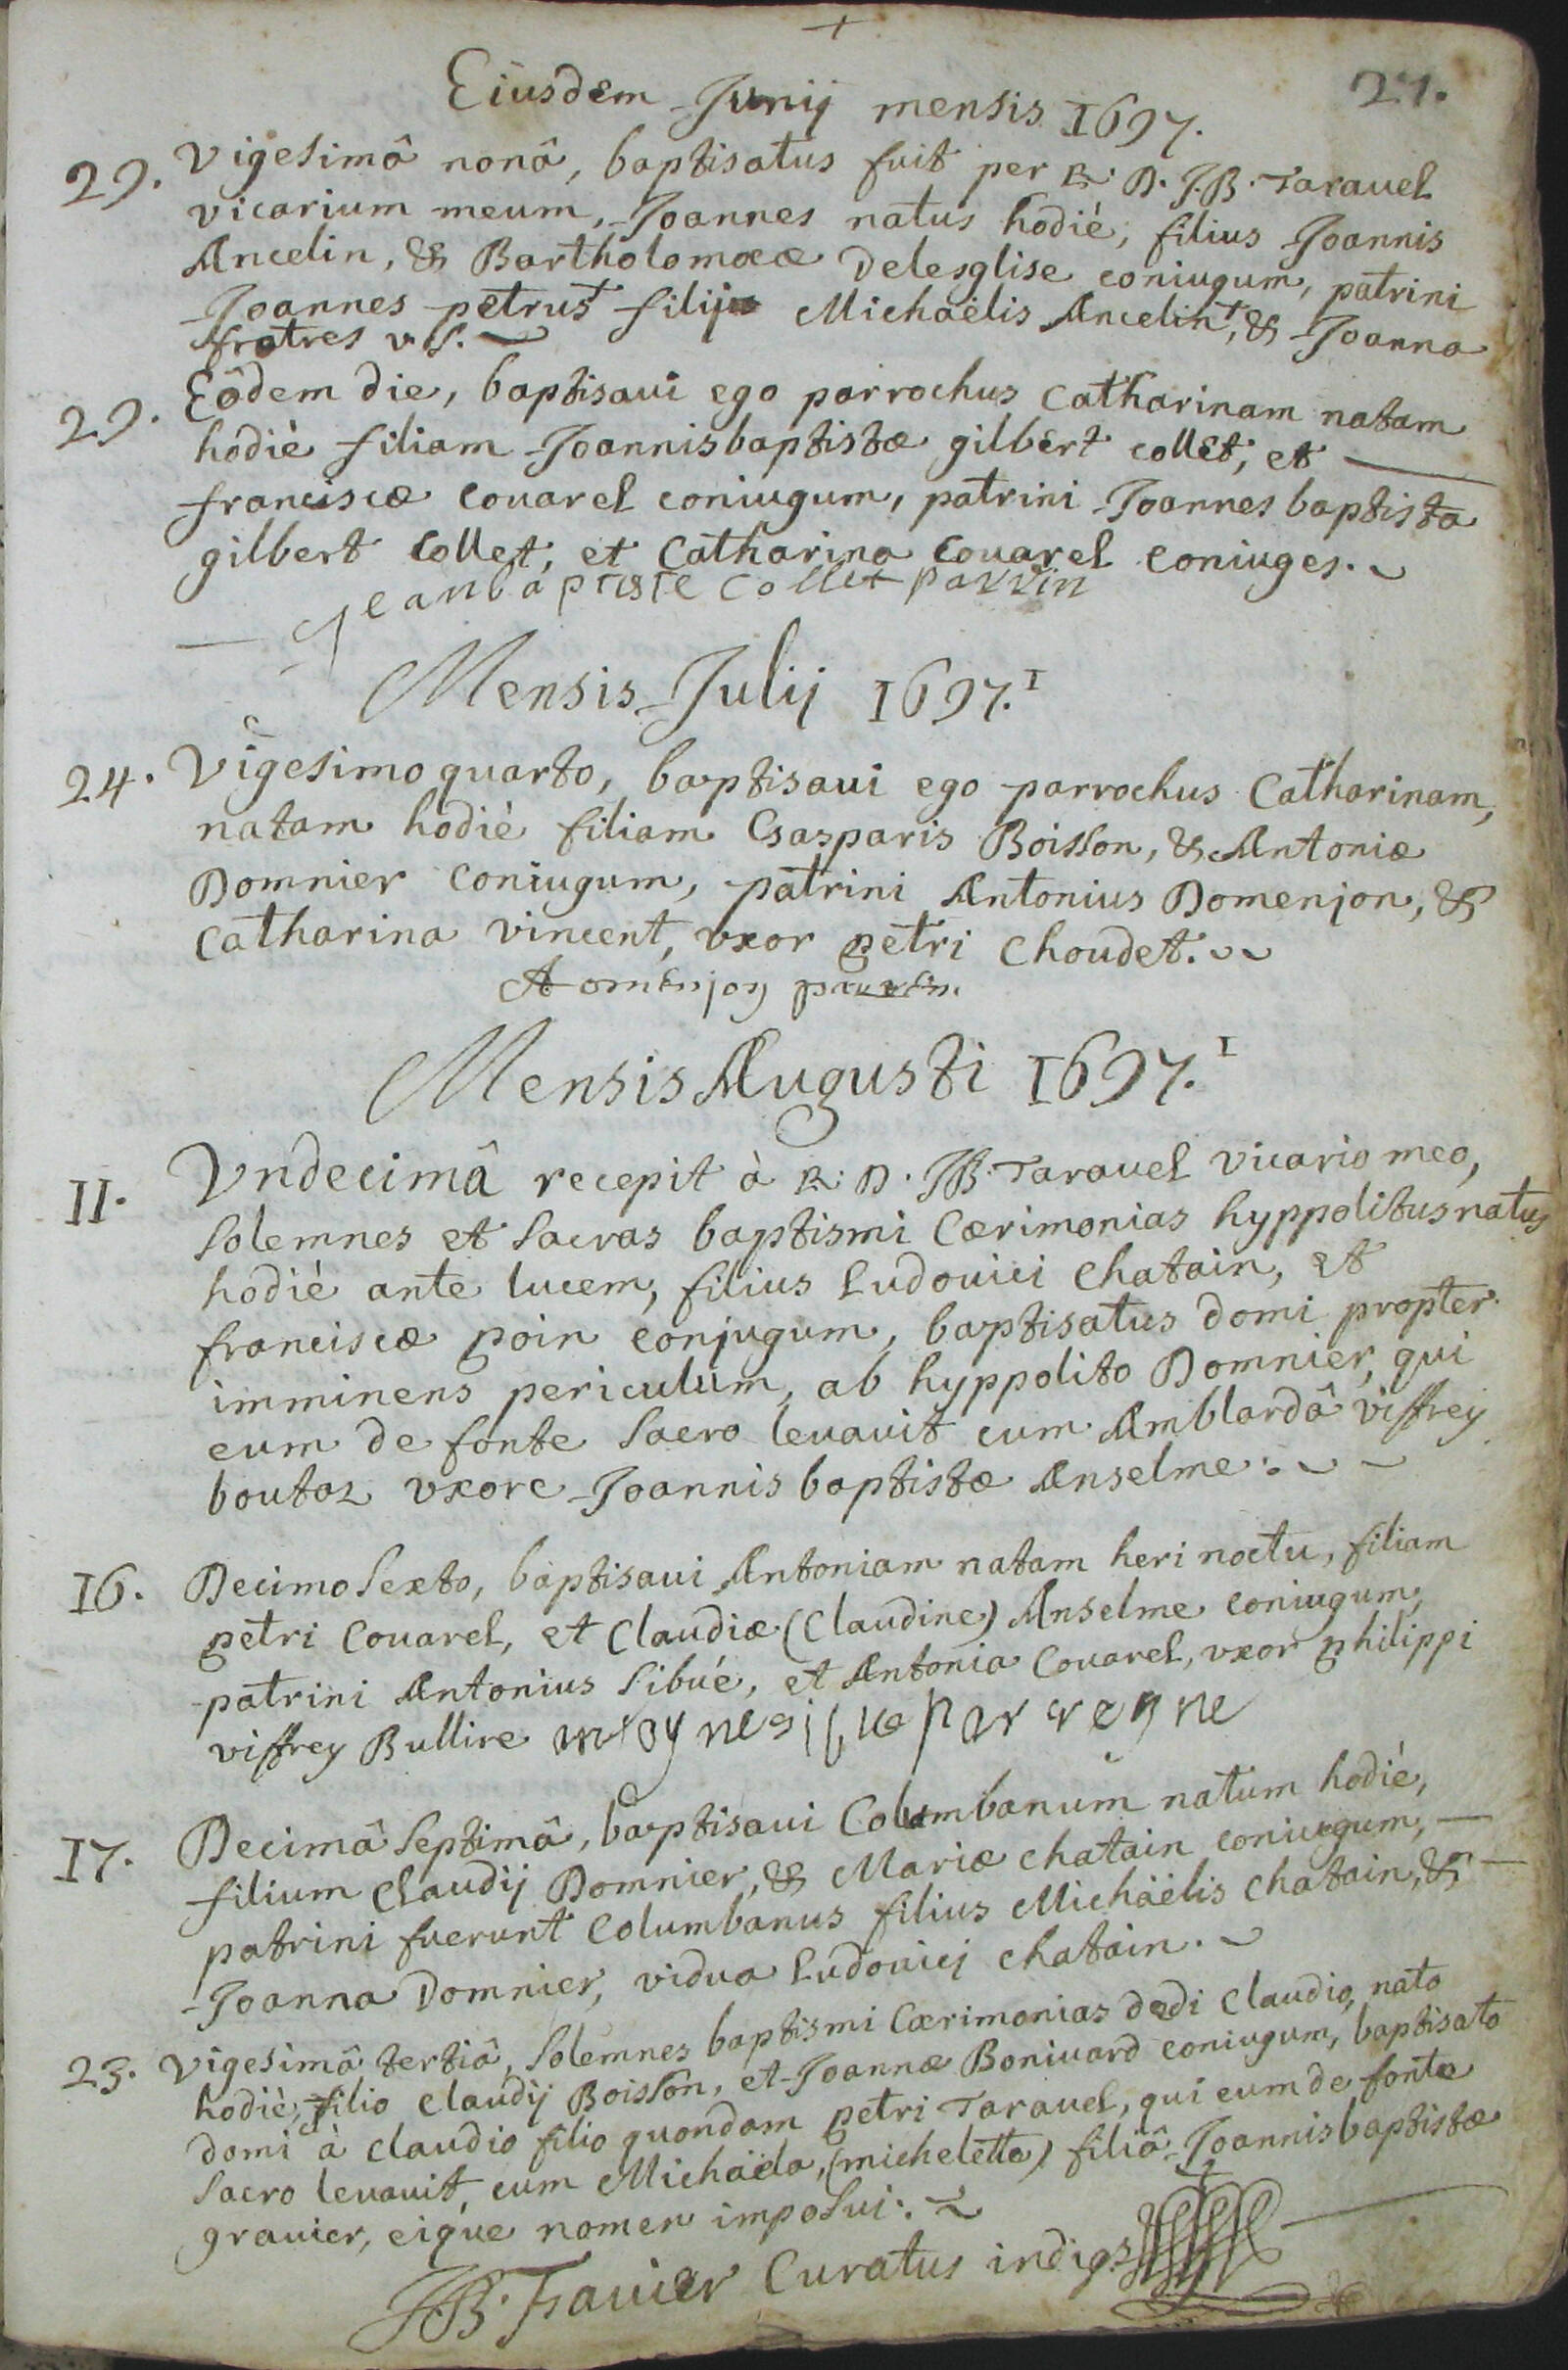 +
27.
Eiusdem Junij mensis 1697.
29. Vigesimâ nonâ, baptisatus fuit per R. D. J.B. Tarauel
vicarium meum, Joannes natus hodiè, filius Joannis
Ancelin, & Bartholomææ Delesglise coniugum, patrini
Joannes petrus + filij Michaëlis Ancelin +, & Joanna
+ fratres v.s.
29. Eôdem die, baptisaui ego parrochus Catharinam natam
hodiè filiam Joannisbaptistæ gilbert collet, et
franciscæ couarel coniugum, patrini Joannes baptista
gilbert Collet, et Catharina couarel coniuges.
Jeanbaptiste Collet parrin
Mensis Julij 1697.
24. Vigesimo quarto, baptisaui ego parrochus Catharinam,
natam hodiè filiam Gasparis Boisson, & Antoniæ
Domnier coniugum, patrini Antonius Domenjon, &
Catharina vincent, vxor petri choudet.
A Domenjon parrin.
Mensis Augusti 1697.
11. Vndecimâ recepit à R. D. JB. Tarauel vicario meo,
solemnes et sacras baptismi Cærimonias hyppolitus natus
hodiè ante lucem, filius Ludouici chatain, et
franciscæ poin conjugum, baptisatus domi propter
imminens periculum, ab hyppolito Domnier, qui
eum de fonte sacro leuauit cum Amblardâ viffrey
boutaz vxore Joannis baptistæ Anselme.
16. Decimo sexto, baptisaui Antoniam natam heri noctu, filiam
petri Couarel, et Claudiæ (Claudine) Anselme coniugum,
patrini Antonius sibué, et Antonia Couarel, vxor philippi
viffrey Bullire
17. Decimâ septimâ, baptisaui Columbanum natum hodiè,
filium Claudij Domnier, & Mariæ chatain coniugum,
patrini fuerunt Columbanus filius Michaëlis chatain, &
Joanna Domnier, vidua Ludouici chatain.
23. Vigesimâ tertiâ, solemnes baptismi Cærimonias dedi claudio, nato
hodiè, filio claudij Boisson, et Joannæ Boniuard coniugum, baptisato
domi à claudio filio quondam petri Tarauel, qui eum de fonte
sacro leuauit, cum Michaëla, (michelette) filiâ Joannisbaptistæ
grauier, eique nomen imposui.
JB. Frauier Curatus indigs